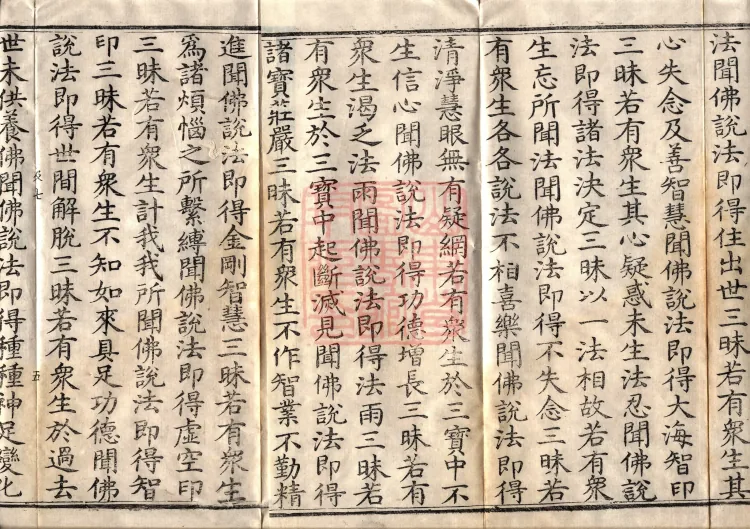 法聞佛說法即得住出世三昧若有衆生其
心失念及善智慧聞佛說法即得大海智印
三昧若有衆生其心疑惑未生法忍聞佛說
法即得諸法決定三昧以一法相故若有衆
生忘所聞法聞佛說法即得不失念三昧若
有衆生各各說法不相喜樂聞佛說法即得
清淨慧眼無有疑網若有衆生於三寶中不
生信心聞佛說法即得功德增長三昧若有
衆生渴乏法雨聞佛說法即得法雨三昧若
有衆生於三寶中起斷滅見聞佛說法即得
諸寶莊嚴三昧若有衆生不作智業不勤精
進聞佛說法即得金剛智慧三昧若有衆生
爲諸煩惱之所繫縛聞佛說法即得虛空印
三昧若有衆生計我我所聞佛說法即得智
印三昧若有衆生不知如來具足功德聞佛
說法即得世間解脫三昧若有衆生於過去
世未供養佛聞佛說法即得種種神足變化
七
五